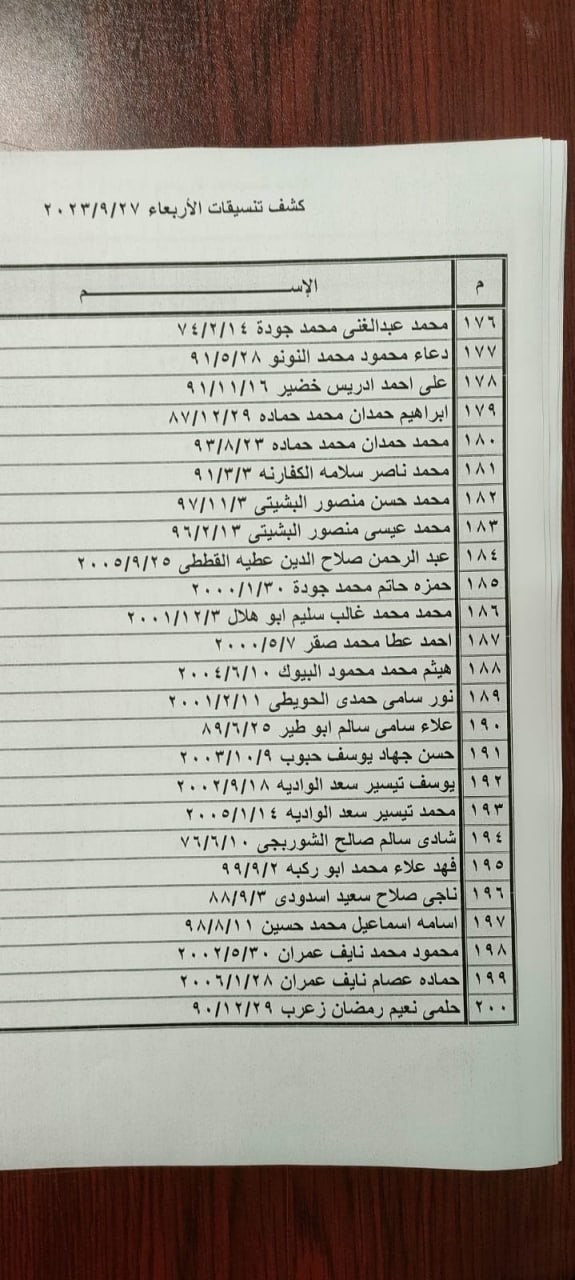 كشف تنسيقات الأربعاء ٢٠٢٣/٩/٢٧
م الإســـــــــــــــــــم
١٧٦ محمد عبدالغنى محمد جودة ٧٤/٢/١٤
١٧٧ دعاء محمود محمد النونو ٩١/٥/٢٨
١٧٨ على احمد ادريس خضير ٩١/١١/١٦
١٧٩ ابراهيم حمدان محمد حماده ٨٧/١٢/٢٩
١٨٠ محمد حمدان محمد حماده ٩٣/٨/٢٣
١٨١ محمد ناصر سلامه الكفارنه ٩١/٣/٣
١٨٢ محمد حسن منصور البشيتى ٩٧/١١/٣
١٨٣ محمد عيسى منصور البشيتى ٩٦/٢/١٣
١٨٤ عبد الرحمن صلاح الدين عطيه القططى ٢٠٠٥/٩/٢٥
١٨٥ حمزه حاتم محمد جودة ٢٠٠٠/١/٣٠
١٨٦ محمد محمد غالب سليم ابو هلال ٢٠٠١/١٢/٣
١٨٧ احمد عطا محمد صقر ٢٠٠٠/٥/٧
١٨٨ هيثم محمد محمود البيوك ٢٠٠٤/٦/١٠
١٨٩ نور سامى حمدى الحويطى ٢٠٠١/٢/١١
١٩٠ علاء سامى سالم ابو طير ٨٩/٦/٢٥
١٩١ حسن جهاد يوسف حبوب ٢٠٠٣/١٠/٩
١٩٢ يوسف تيسير سعد الواديه ٢٠٠٢/٩/١٨
١٩٣ محمد تيسير سعد الواديه ٢٠٠٥/١/١٤
١٩٤ شادى سالم صالح الشوربجي ٧٦/٦/١٠
١٩٥ فهد علاء محمد ابو ركبه ٩٩/٩/٢
١٩٦ ناجى صلاح سعيد اسدودى ٨٨/٩/٣
١٩٧ اسامه اسماعيل محمد حسين ٩٨/٨/١١
١٩٨ محمود محمد نايف عمران ٢٠٠٢/٥/٣٠
١٩٩ حماده عصام نايف عمران ٢٠٠٦/١/٢٨
٢٠٠ حلمى نعيم رمضان زعرب ٩٠/١٢/٢٩